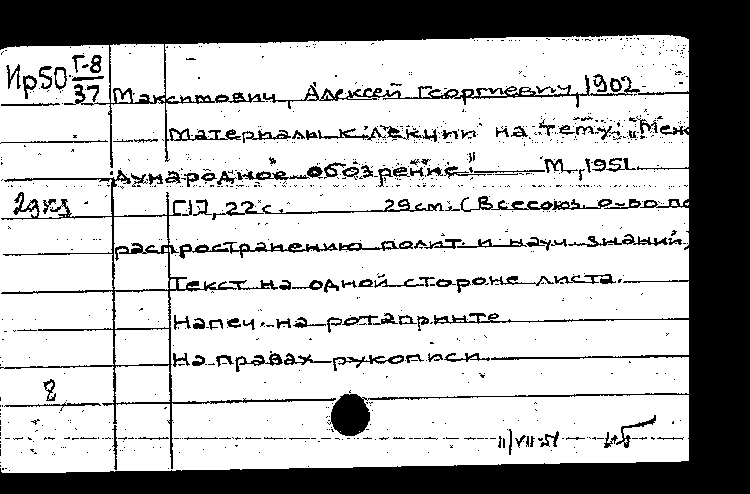 Ир50 Г-8
37
Максимович, Алексей Георгиевич, 1902
Материалы к лекции на тему: "Меж
дународное обозрение" М., 1951.
2экз.
[1], 22 с. 29 см. (Всесоюз. о-во по
распространению полит. и науч. знаний)
Текст на одной стороне листа.
Напеч. на ротапринте.
На правах рукописи.
8
11/VII-51